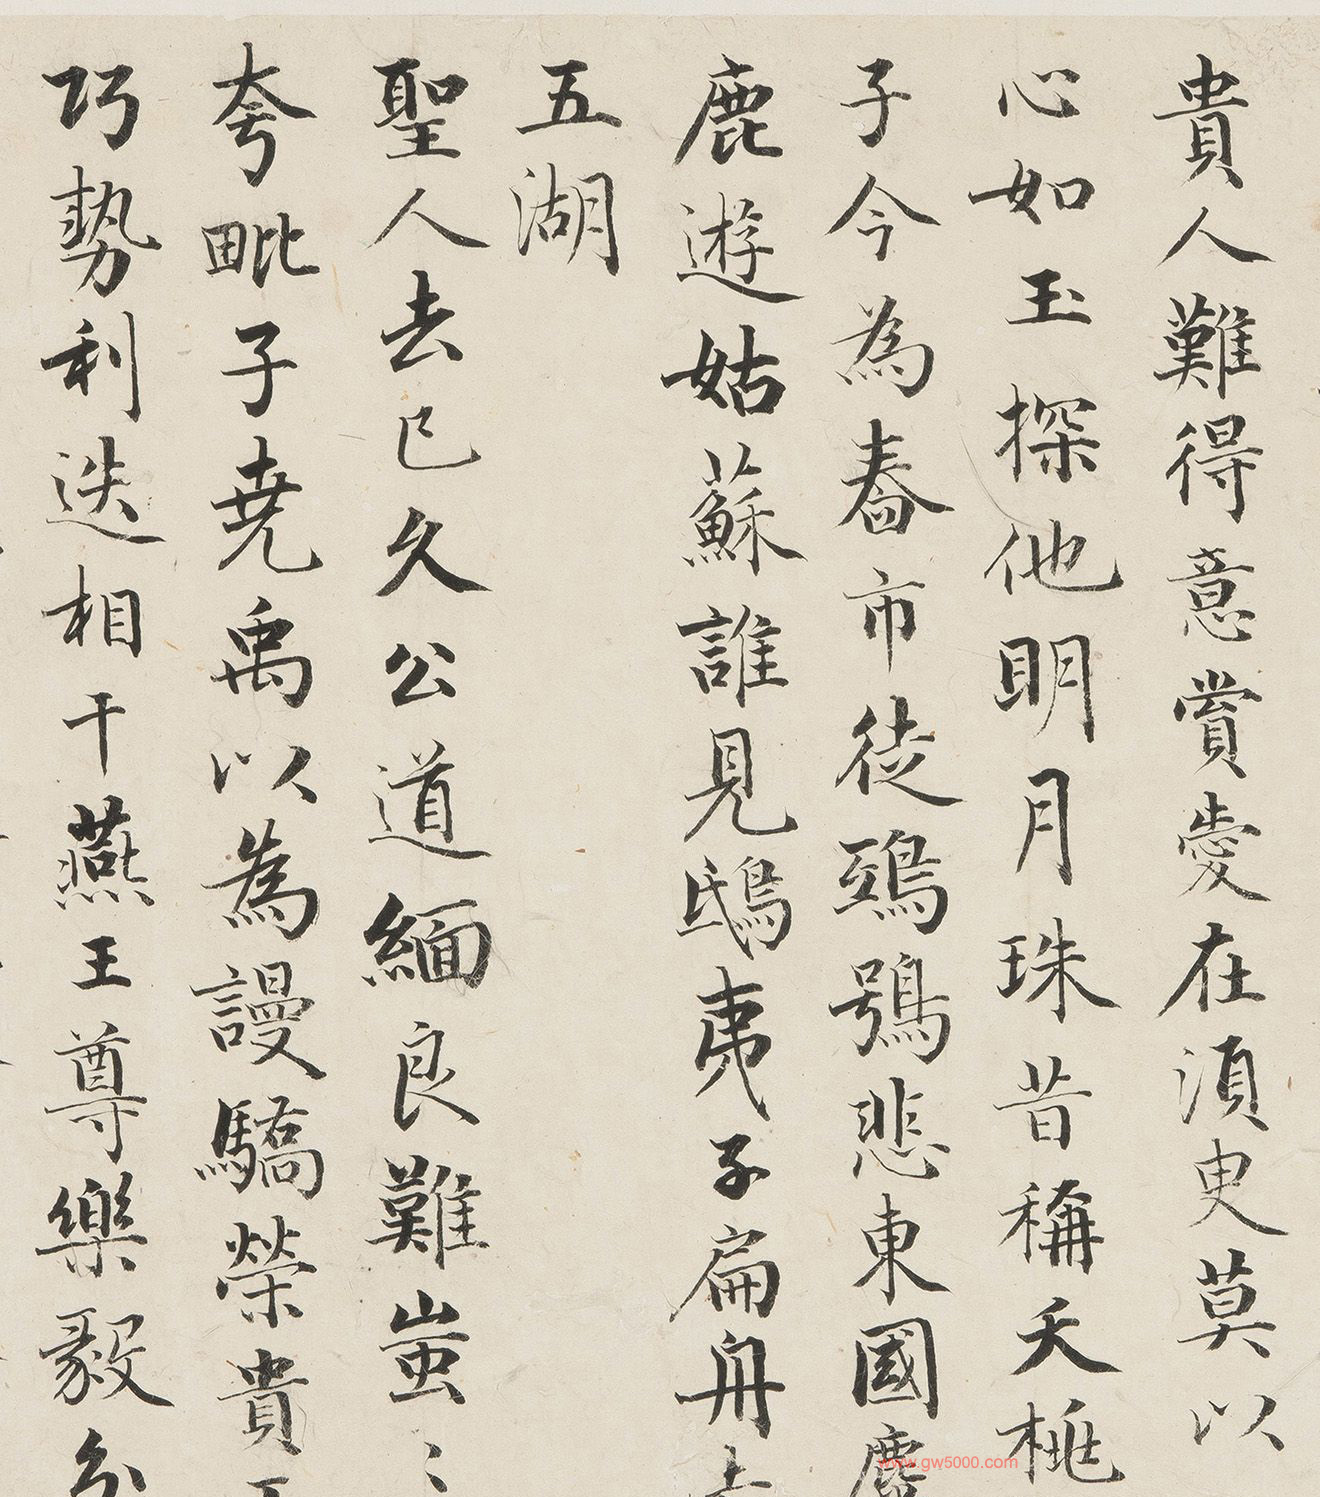 貴人難得意賞愛在須臾莫以
心如玉探他明月珠昔稱夭桃
子今為舂市徒鵶鴞悲東國麋
鹿遊姑蘇誰見鴟夷子扁舟去
五湖
聖人去已久公道緬良難蚩〻
夸毗子堯禹以為謾驕榮貴工
巧勢利迭相干燕王尊樂毅分
www.gw5000.com